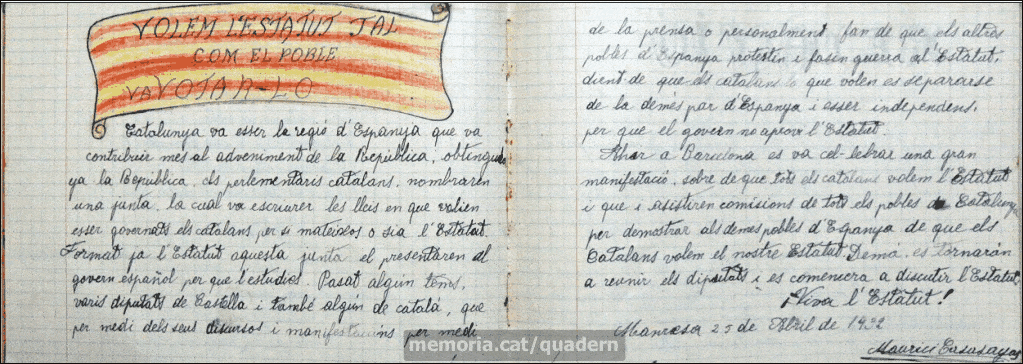 VOLEM L'ESTATUT TAL
COM EL POBLE
VA VOTAR-LO
Catalunya va esser la regió d'Espanya que va
contribuir mes al adveniment de la República, obtinguda
ya la República, els perlementaris catalans, nombraren
una junta, la cual va escriurer les lleis en que valien
esser governats els catalans per si mateixos o sia l'Estatut.
Format ja l'Estatut aquesta junta el presentaren al
govern español per que l'estudies. Pasat algún tems,
varis diputats de Castella i també algún de catalá, que
per medi dels seus discursos i manifestacins per medi
de la prensa o personalment fan de que els altres
pobles d'Espanya protestin i fasin guerra al l'Estatut,
dient de que els catalans lo que volen es separarse
de la demés par d'Espanya i esser independens,
per que el govern no aprovi l'Estatut.
Ahir a Barcelona es va cel-lebrar una gran
manifestació, sobre de que tots els catalans volem l'Estatut
i que i asistiren comisions de tots els pobles de Catalunya
per demostrar als demes pobles d'Espanya de que els
Catalans volem el nostre Estatut. Demá, es tornarán
a reunir els diputats i es comencera a discutir l'Estatut.
¡Viva l'Estatut!
Manresa 25 de Abril de 1932
Maurici Casasayas
memoria.cat/quadern